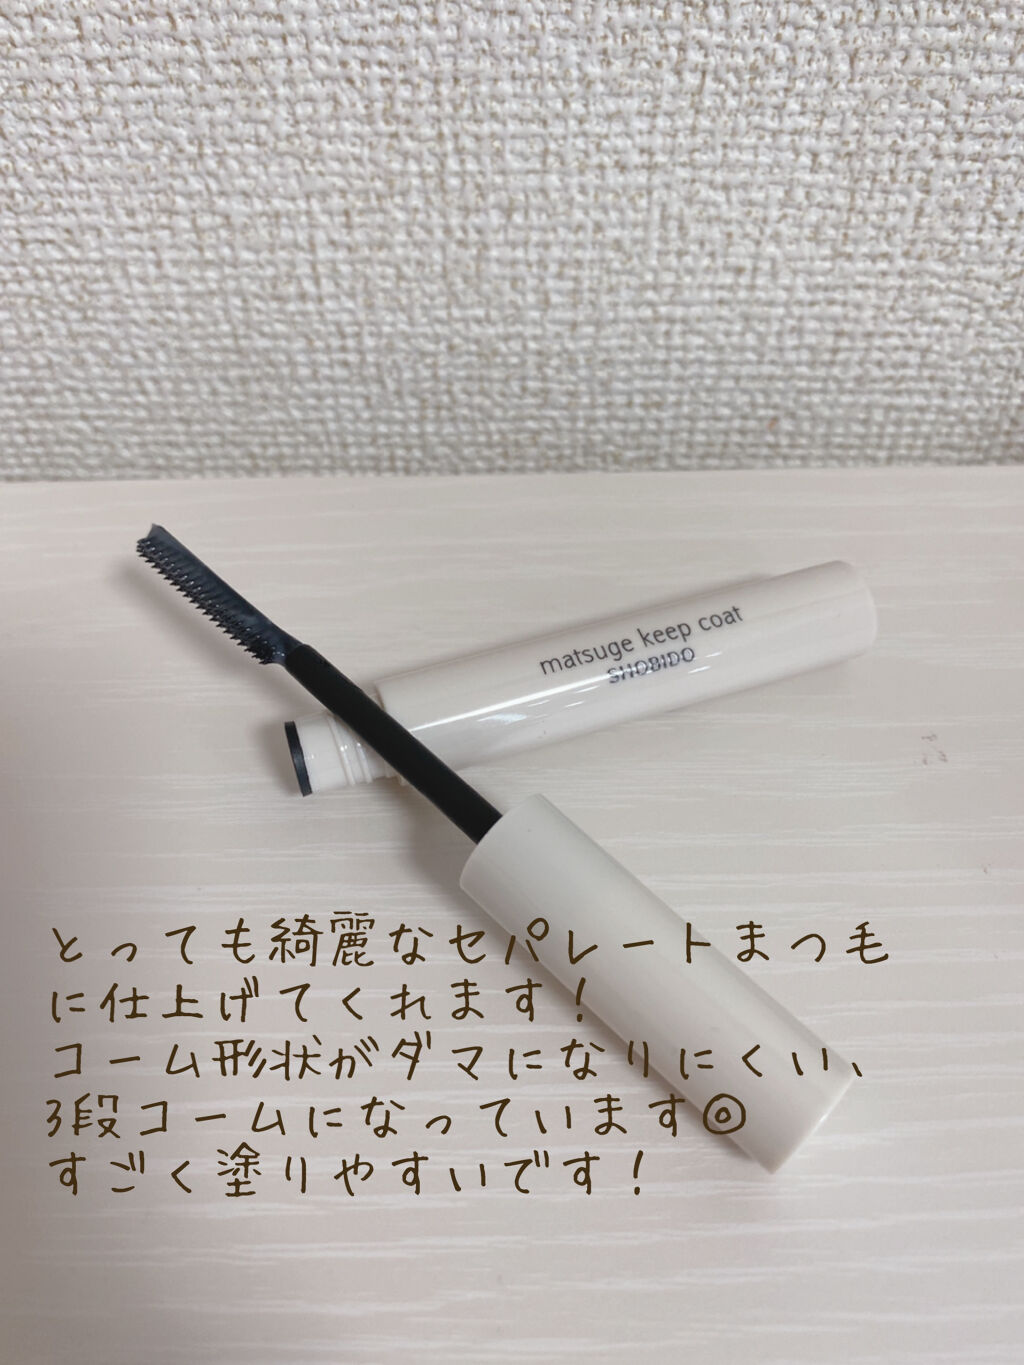 matsuge keep coat
SHOBIDO
とっても綺麗なセパレートまつ毛
に仕上げてくれます！
コーム形状がダマになりにくい、
3段コームになっています◎
すごく塗りやすいです！